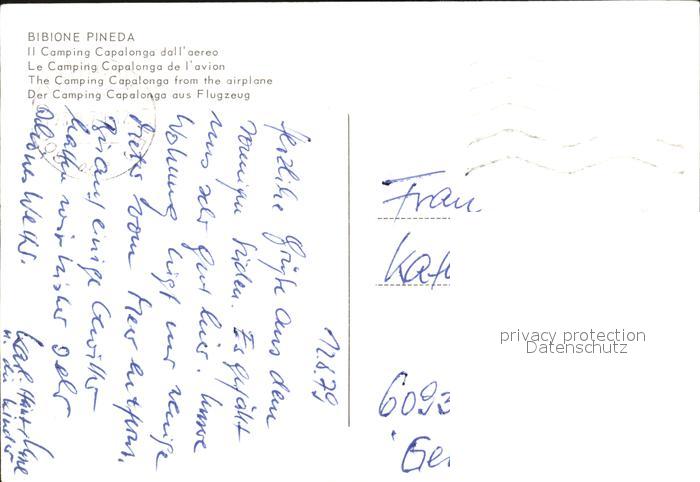 BIBIONE PINEDA
Il Camping Capalonga dall'aereo
Le Camping Capalonga de l'avion
The Camping Capalonga from the airplane
Der Camping Capalonga aus Flugzeug
11.8.79
Herzliche Grüße aus dem
sonnigen Süden. Es gefällt
uns sehr gut hier. Unsere
Wohnung liegt nur wenige
Meter vom Meer entfernt.
Bis auf einige Gewitter
hatten wir bisher sehr
schönes Wetter.
u. die Kinder
Frau
Kat
6093
privacy protection
Datenschutz